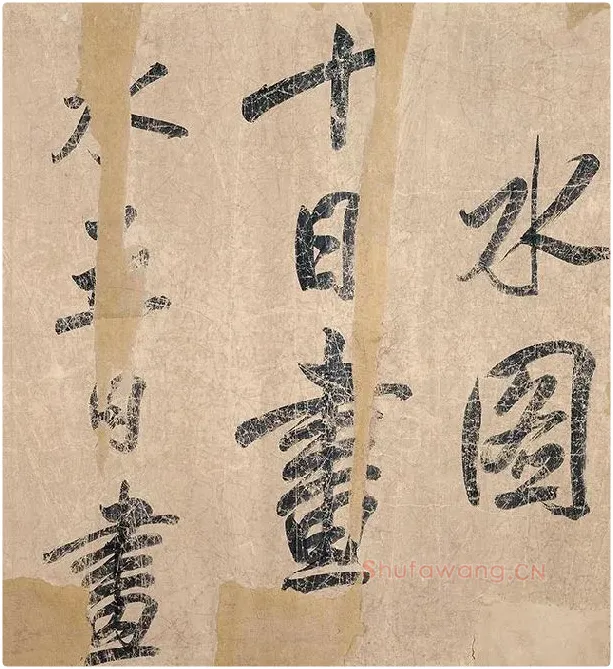 水圖
十日畫
水五日畫
Shufawang.CN